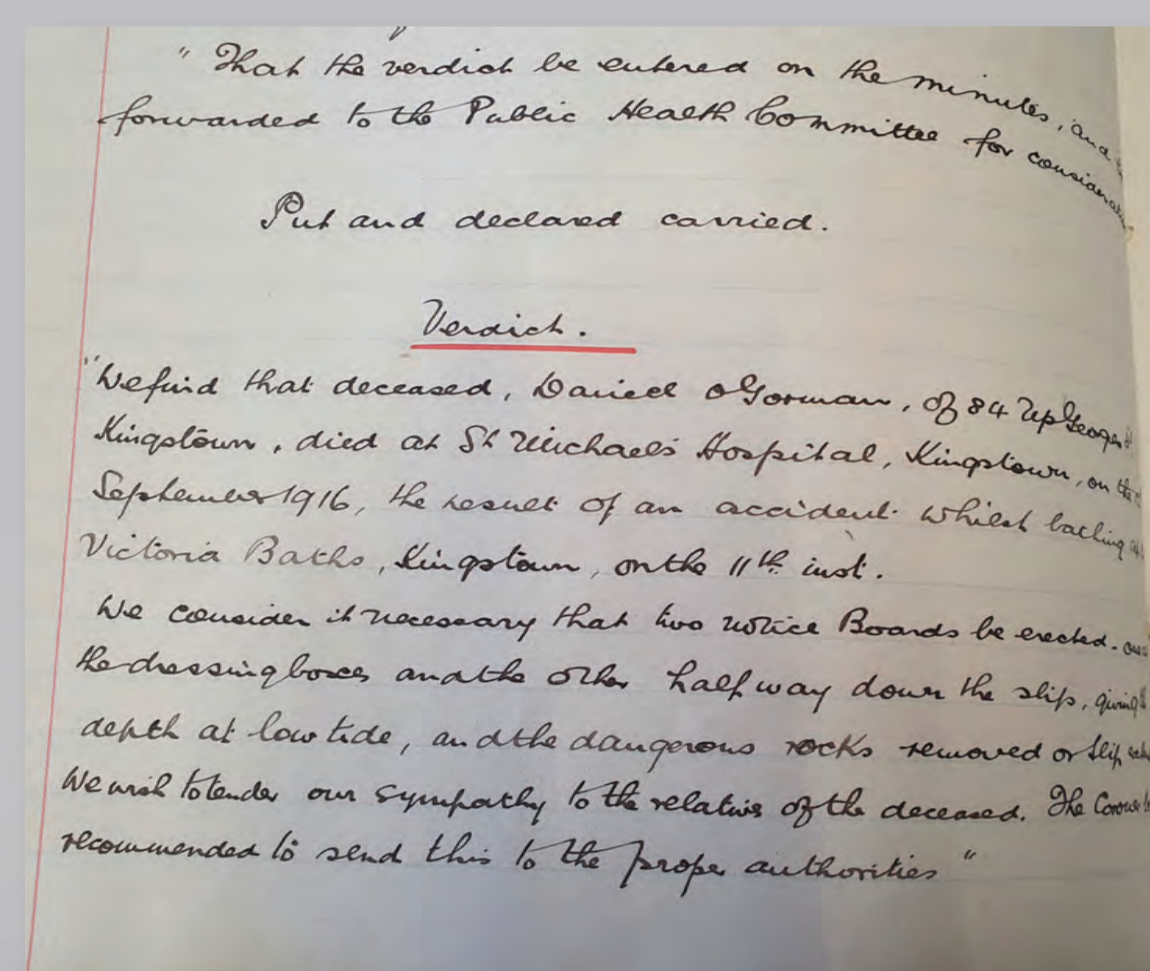 "That the verdict be entered on the minutes, and
forwarded to the Public Health Committee for
Put and declared carried.
Verdict.
"We find that deceased, Daniel O'Gorman, of 84 Up George's
Kingstown, died at St Michael's Hospital, Kingstown, on the
September 1916, the result of an accident whilst bathing at
Victoria Baths, Kingstown, on the 11th inst.
We consider it necessary that two notice Boards be erected. one
the dressing boxes and the other half way down the slip, giving
depth at low tide, and the dangerous rocks removed or slip
We wish to tender our sympathy to the relatives of the deceased. The Coroner
recommended to send this to the proper authorities"